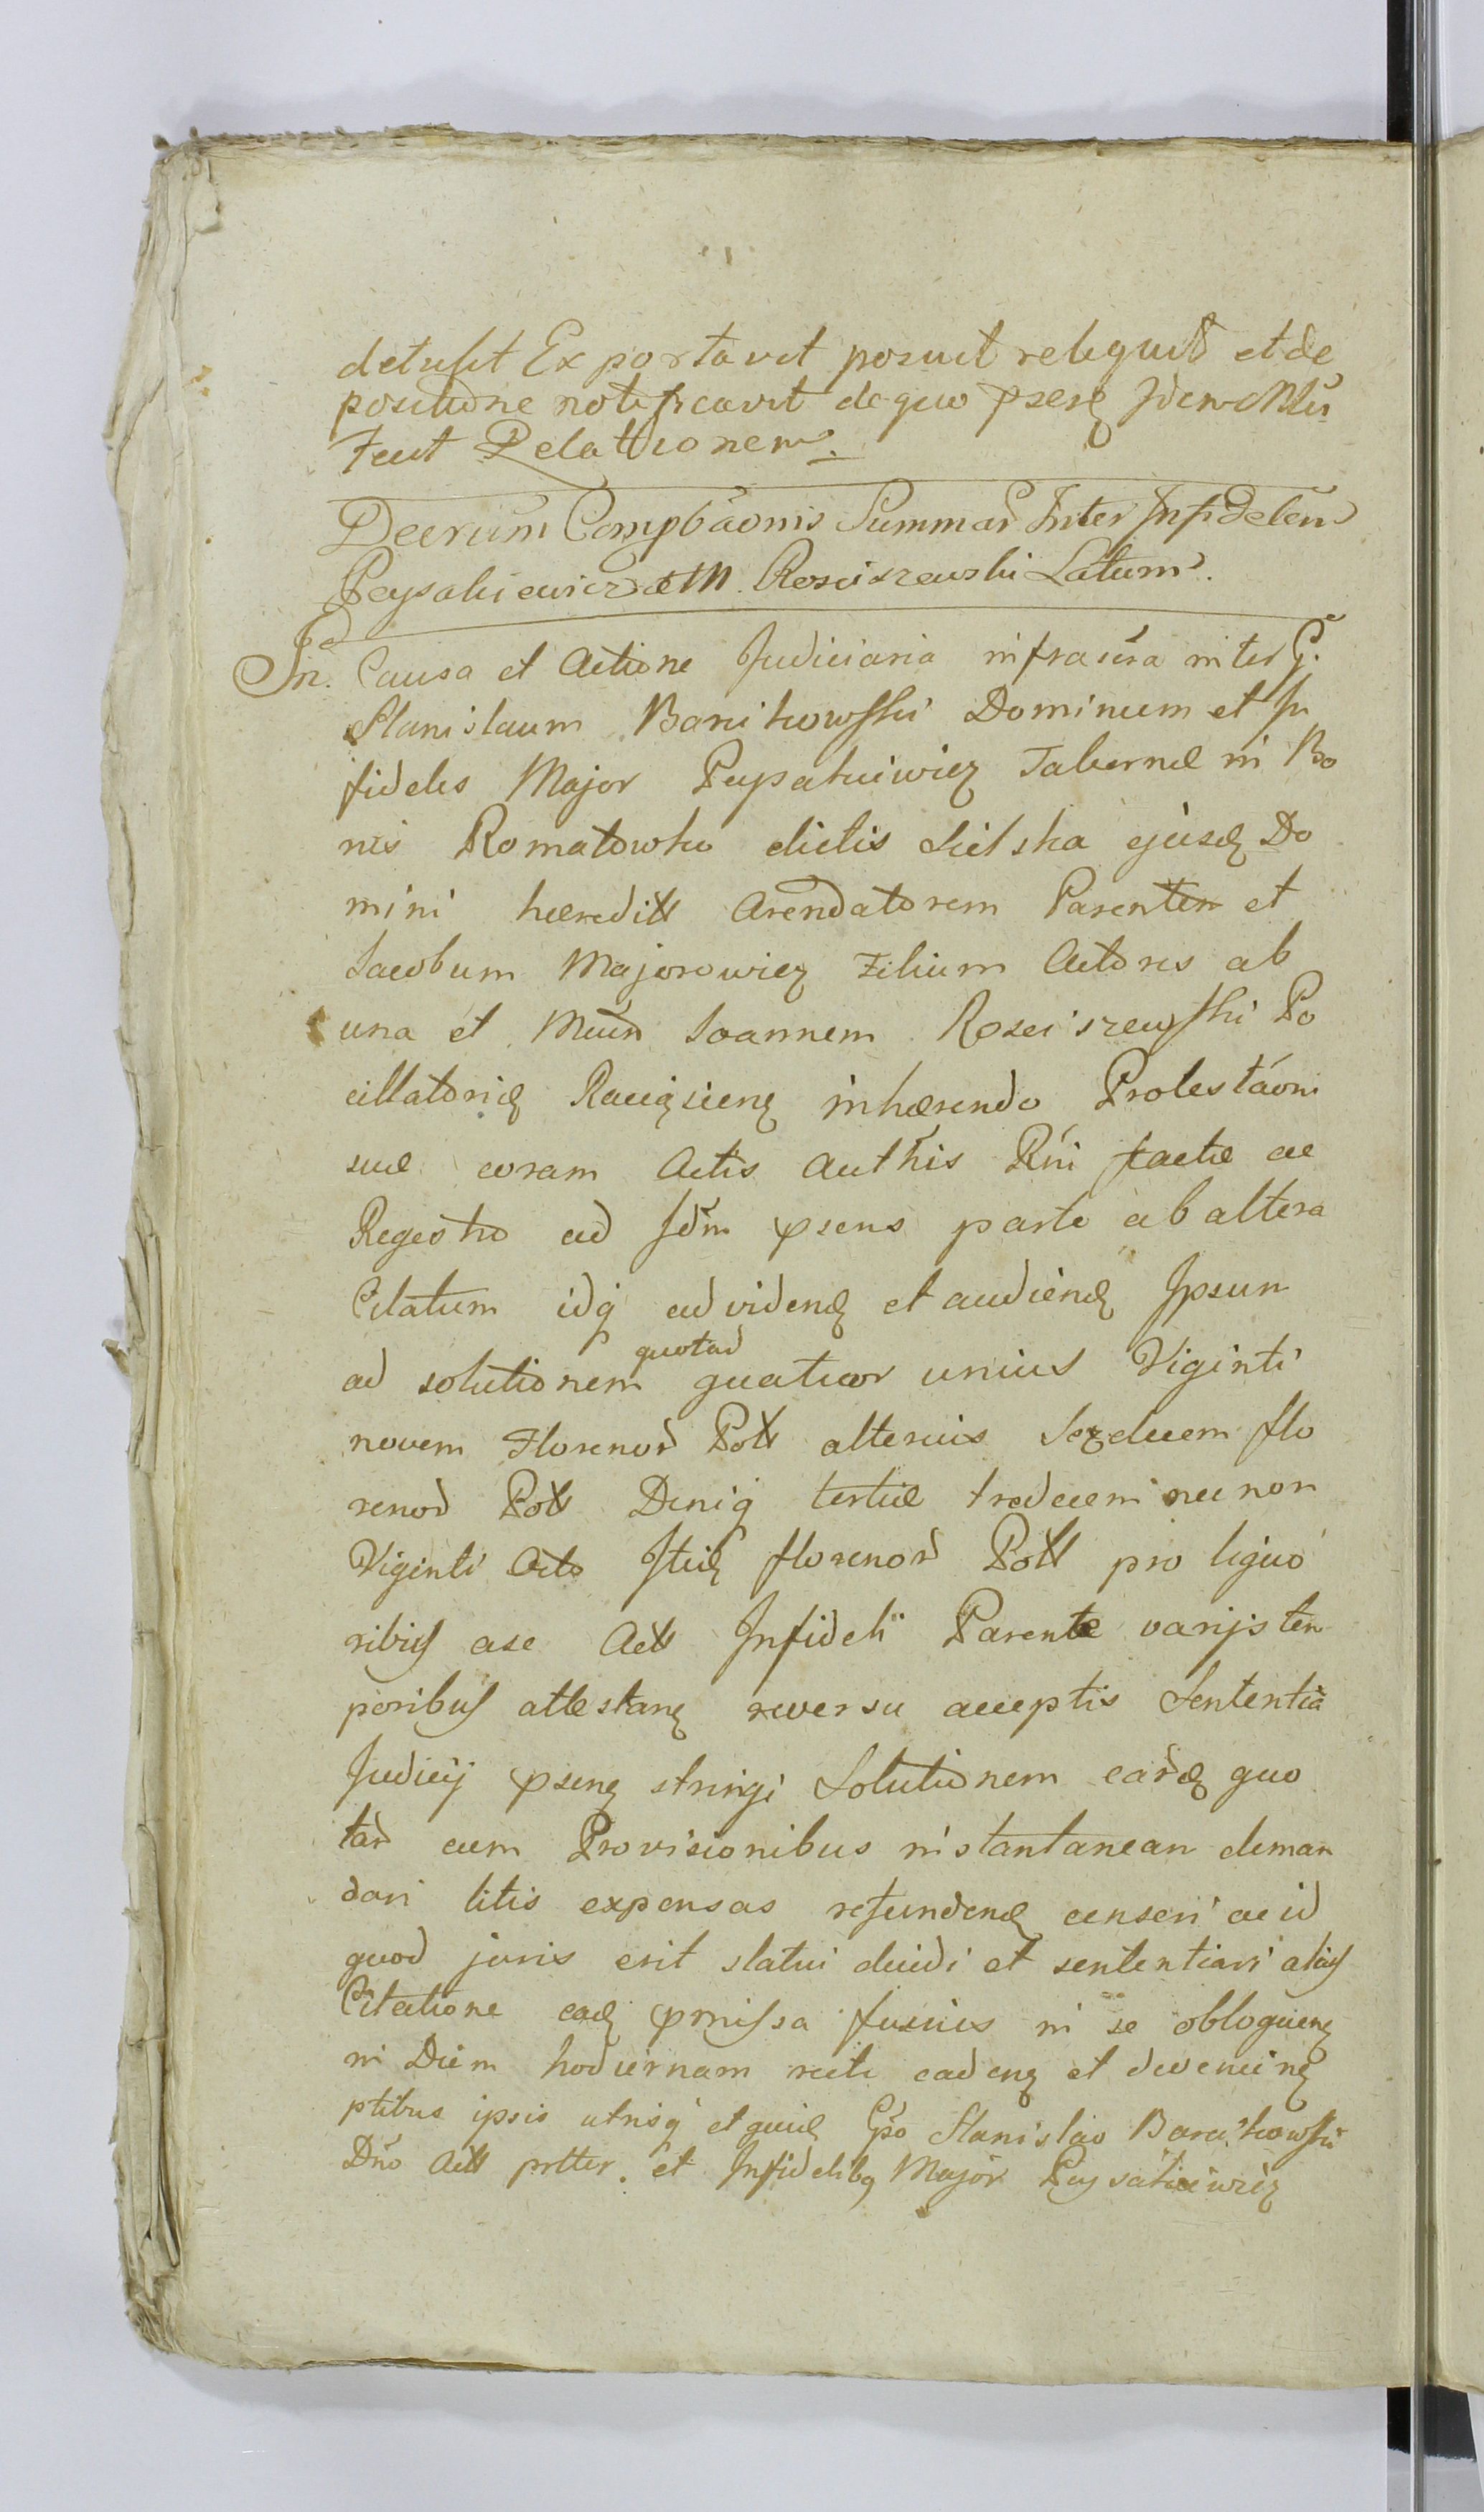 detulit Exportavit posuit reliquit et de
positione notificavit de quo psens Idem Mli
Fecit Relationem.
Decrum Compbãonis Summar Inter Infidelem
Peysakiewicz et M. Rosciszewski Latum.
In. Causa et Actione Judiciaria infrascra inter G.
Stanislaum Baníkowski Dominum et In
fideles Major Peysakiewicz Tabernæ in Bo
nis Romatowko dictis Sielska ejusd Do
mini hæreditt Arendatorem Parentem et
Jacobum Majorowicz Filium Actores ab
una et Mcum Joannem Rosciszewski Po
cillatorię Raciązienę inhærendo Protestãoni
suæ coram Actis Authis Rńi factæ ac
Regestro ad Idm psens parte ab altera
Citatum idq ad videnď et audienď Ipsum
ad solutionem quotar quatuor unius Viginti
novem Florenor Poll alterius Sexdecem flo
renor Poll Deniq tertiæ tredecem necnon
Viginti Octo Itid florenor Poll pro liquo
ribus ase Actt Infideli Parente varijs tem
poribus attestanę reversu acceptis Sententia
Judicij psenę stringi Solutionem earď quo
tar cum Provisionibus instantanean deman
dari litis expensas refundenď censeri ac id
quod juris erit statui decidi et sententiari alias
Citatione eadď pmissa fusius in se obloquenę
in Diem hodiernam recte cadenę et devenienę
ptibus ipsis utrisq et quid Gso Stanislao Barańkowski
Dńo Actt prtter. et Infidelibq Major Peysatkiewicz